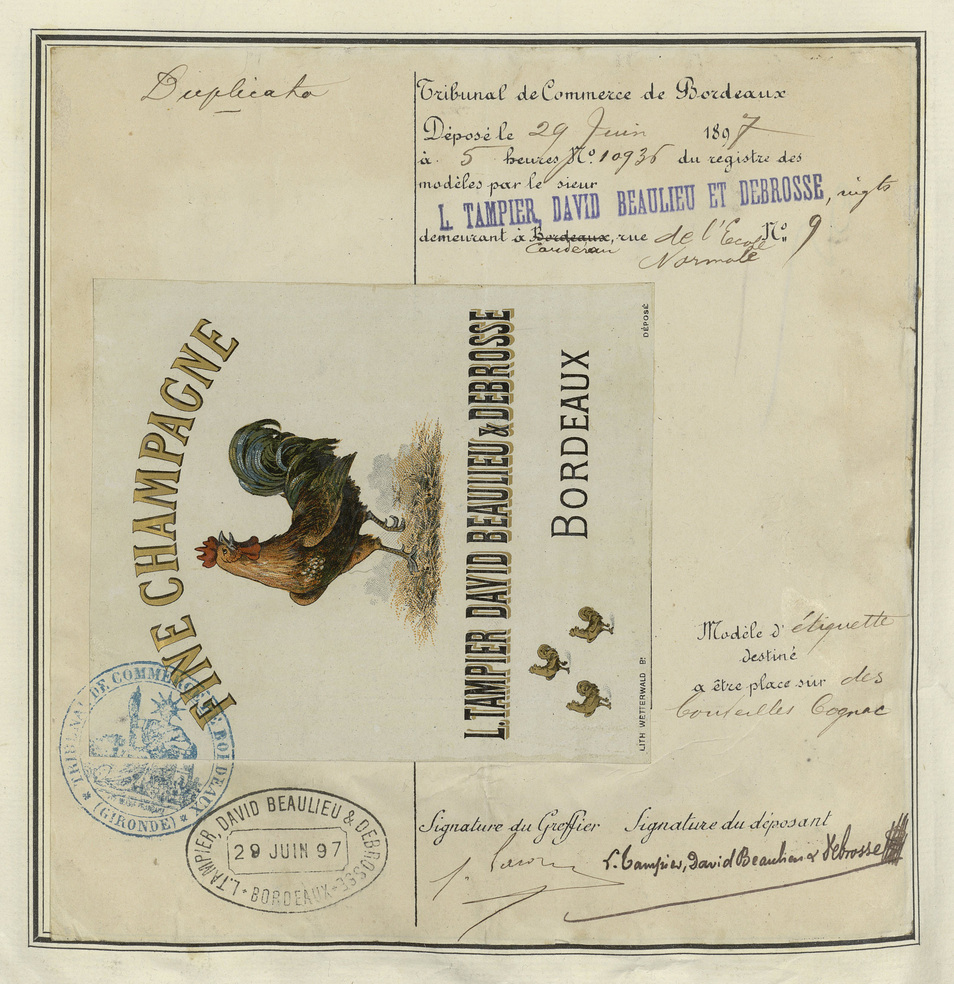 Duplicata
Tribunal de Commerce de Bordeaux
Déposé le 29 Juin 1897
à 5 heures Nº 10936 du registre des
modèles par le sieur
L. TAMPIER, DAVID BEAULIEU ET DEBROSSE, négts
demeurant à Bordeaux, rue de l'Ecole Nº 9
Caudéran Normale
FINE CHAMPAGNE
L. TAMPIER DAVID BEAULIEU & DEBROSSE
BORDEAUX
DÉPOSÉ
LITH WETTERWALD Bx
Modèle d'étiquette
destiné
a être place sur des
bouteilles Cognac
TRIBUNAL DE COMMERCE DE BORDEAUX
(GIRONDE)
L. TAMPIER, DAVID BEAULIEU & DEBROSSE
29 JUIN 97
BORDEAUX
Signature du Greffier Signature du déposant
L. Tampier, David Beaulieu & Debrosse